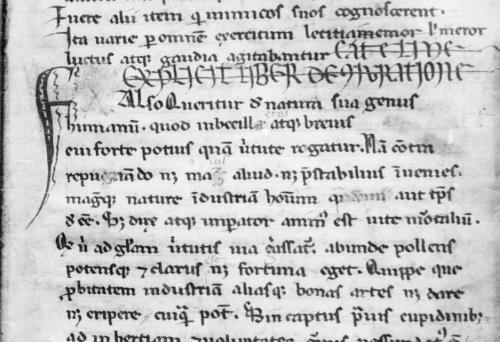 Fuere alii item q inimicos suos cognoscerent.
Ita varie p omnē exercitum letitia memor l meror
luctus atq; gaudia agitabantur CATELINE
EXPLICIT LIBER DE IVRATIONE
Falso Queritur d̄ natura sua genus
humanū. quod inbecilla atq; breuis
eui forte potius quā ūtute regatur. Nā cōtra
reputādo nȝ mag̅ aliud. nȝ p̄stabilius īuenies.
mag̅q; nature īdustriā hoīum q uim aut tp̄s
d̄ēē. Sȝ dux atq; īperator anim᷒ est uite mortaliū.
Q̄ ū ad gl̄am ūtutis uia g̅ssat̄. abunde pollens
potensq; ⁊ clarus nȝ fortuna eget. Quippe que
ꝓbitatem industriam aliasq; bonas artes nȝ dare
nȝ eripere cuiq̄ pot̄. Sin captus p̄uis cupidinibȝ
ad inhertiam ⁊ uoluptates